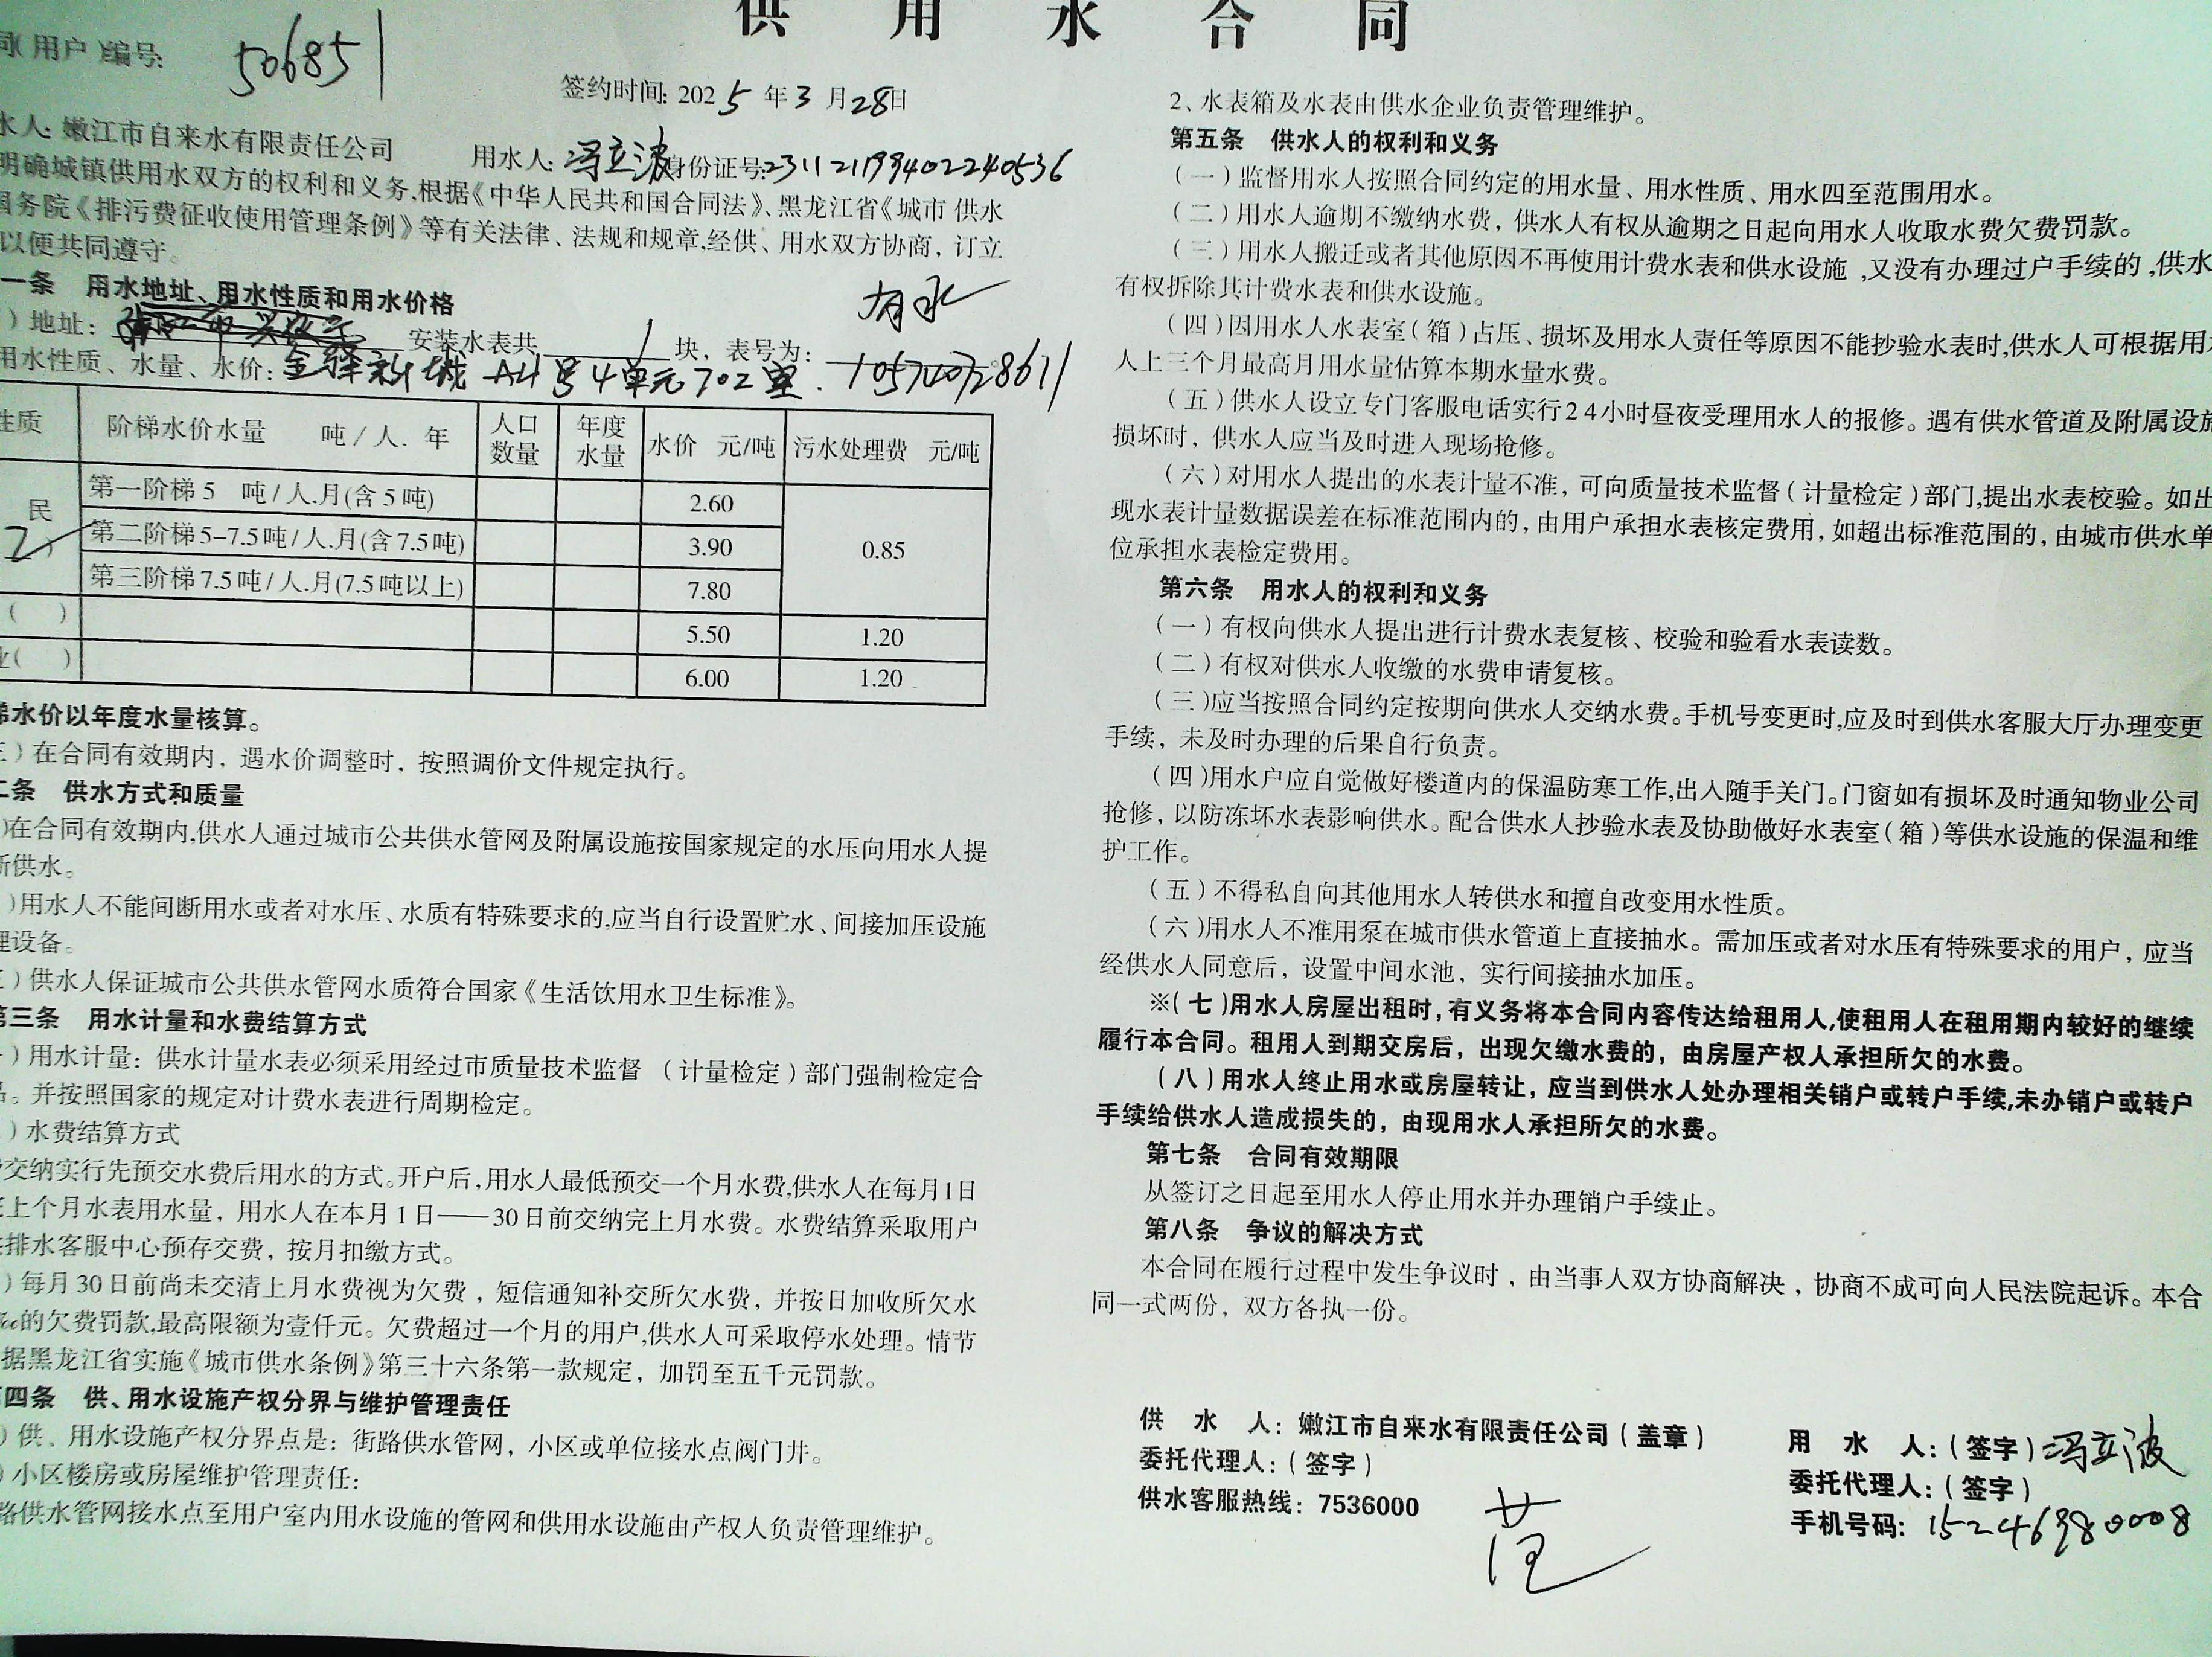 供用水合同
同(用户)编号: 506851
签约时间: 2025年3月28日
水人: 嫩江市自来水有限责任公司 用水人: 冯立波 身份证号: 231121199402240536
明确城镇供用水双方的权利和义务,根据《中华人民共和国合同法》、黑龙江省《城市供水
国务院《排污费征收使用管理条例》等有关法律、法规和规章,经供、用水双方协商，订立
以便共同遵守。
一条 用水地址、用水性质和用水价格
有水
)地址: 安装水表共 1 块，表号为:
用水性质、水量、水价: 金驿新城 A4号4单元702室. 105740728611
性质 阶梯水价水量 吨/人.年 人口数量 年度水量 水价 元/吨 污水处理费 元/吨
民 第一阶梯 5 吨/人.月(含5吨) 2.60 0.85
第二阶梯5-7.5吨/人.月(含7.5吨) 3.90
第三阶梯7.5吨/人.月(7.5吨以上) 7.80
( ) 5.50 1.20
业( ) 6.00 1.20
梯水价以年度水量核算。
三)在合同有效期内，遇水价调整时，按照调价文件规定执行。
二条 供水方式和质量
)在合同有效期内,供水人通过城市公共供水管网及附属设施按国家规定的水压向用水人提
断供水。
)用水人不能间断用水或者对水压、水质有特殊要求的,应当自行设置贮水、间接加压设施
理设备。
三)供水人保证城市公共供水管网水质符合国家《生活饮用水卫生标准》。
第三条 用水计量和水费结算方式
一)用水计量：供水计量水表必须采用经过市质量技术监督 (计量检定)部门强制检定合
品。并按照国家的规定对计费水表进行周期检定。
)水费结算方式
交纳实行先预交水费后用水的方式。开户后,用水人最低预交一个月水费,供水人在每月1日
上个月水表用水量，用水人在本月1日——30日前交纳完上月水费。水费结算采取用户
排水客服中心预存交费，按月扣缴方式。
)每月30日前尚未交清上月水费视为欠费，短信通知补交所欠水费，并按日加收所欠水
‰的欠费罚款,最高限额为壹仟元。欠费超过一个月的用户,供水人可采取停水处理。情节
据黑龙江省实施《城市供水条例》第三十六条第一款规定，加罚至五千元罚款。
四条 供、用水设施产权分界与维护管理责任
)供、用水设施产权分界点是：街路供水管网，小区或单位接水点阀门井。
)小区楼房或房屋维护管理责任：
路供水管网接水点至用户室内用水设施的管网和供用水设施由产权人负责管理维护。
2、水表箱及水表由供水企业负责管理维护。
第五条 供水人的权利和义务
(一)监督用水人按照合同约定的用水量、用水性质、用水四至范围用水。
(二)用水人逾期不缴纳水费，供水人有权从逾期之日起向用水人收取水费欠费罚款。
(三)用水人搬迁或者其他原因不再使用计费水表和供水设施,又没有办理过户手续的,供水
有权拆除其计费水表和供水设施。
(四)因用水人水表室(箱)占压、损坏及用水人责任等原因不能抄验水表时,供水人可根据用水
人上三个月最高月用水量估算本期水量水费。
(五)供水人设立专门客服电话实行24小时昼夜受理用水人的报修。遇有供水管道及附属设施
损坏时，供水人应当及时进入现场抢修。
(六)对用水人提出的水表计量不准，可向质量技术监督(计量检定)部门,提出水表校验。如出
现水表计量数据误差在标准范围内的，由用户承担水表核定费用，如超出标准范围的，由城市供水单
位承担水表检定费用。
第六条 用水人的权利和义务
(一)有权向供水人提出进行计费水表复核、校验和验看水表读数。
(二)有权对供水人收缴的水费申请复核。
(三)应当按照合同约定按期向供水人交纳水费。手机号变更时,应及时到供水客服大厅办理变更
手续，未及时办理的后果自行负责。
(四)用水户应自觉做好楼道内的保温防寒工作,出入随手关门。门窗如有损坏及时通知物业公司
抢修，以防冻坏水表影响供水。配合供水人抄验水表及协助做好水表室(箱)等供水设施的保温和维
护工作。
(五)不得私自向其他用水人转供水和擅自改变用水性质。
(六)用水人不准用泵在城市供水管道上直接抽水。需加压或者对水压有特殊要求的用户，应当
经供水人同意后，设置中间水池，实行间接抽水加压。
※(七)用水人房屋出租时，有义务将本合同内容传达给租用人,使租用人在租用期内较好的继续
履行本合同。租用人到期交房后，出现欠缴水费的，由房屋产权人承担所欠的水费。
(八)用水人终止用水或房屋转让，应当到供水人处办理相关销户或转户手续,未办销户或转户
手续给供水人造成损失的，由现用水人承担所欠的水费。
第七条 合同有效期限
从签订之日起至用水人停止用水并办理销户手续止。
第八条 争议的解决方式
本合同在履行过程中发生争议时，由当事人双方协商解决，协商不成可向人民法院起诉。本合
同一式两份，双方各执一份。
供 水 人：嫩江市自来水有限责任公司(盖章)
委托代理人：(签字)
供水客服热线：7536000
范
用 水 人：(签字)冯立波
委托代理人：(签字)
手机号码：15246980008